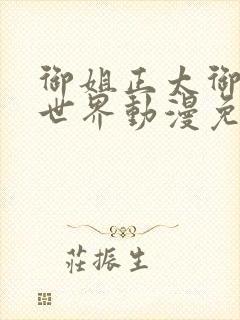 御姐正太御
世界動漫免
莊振生